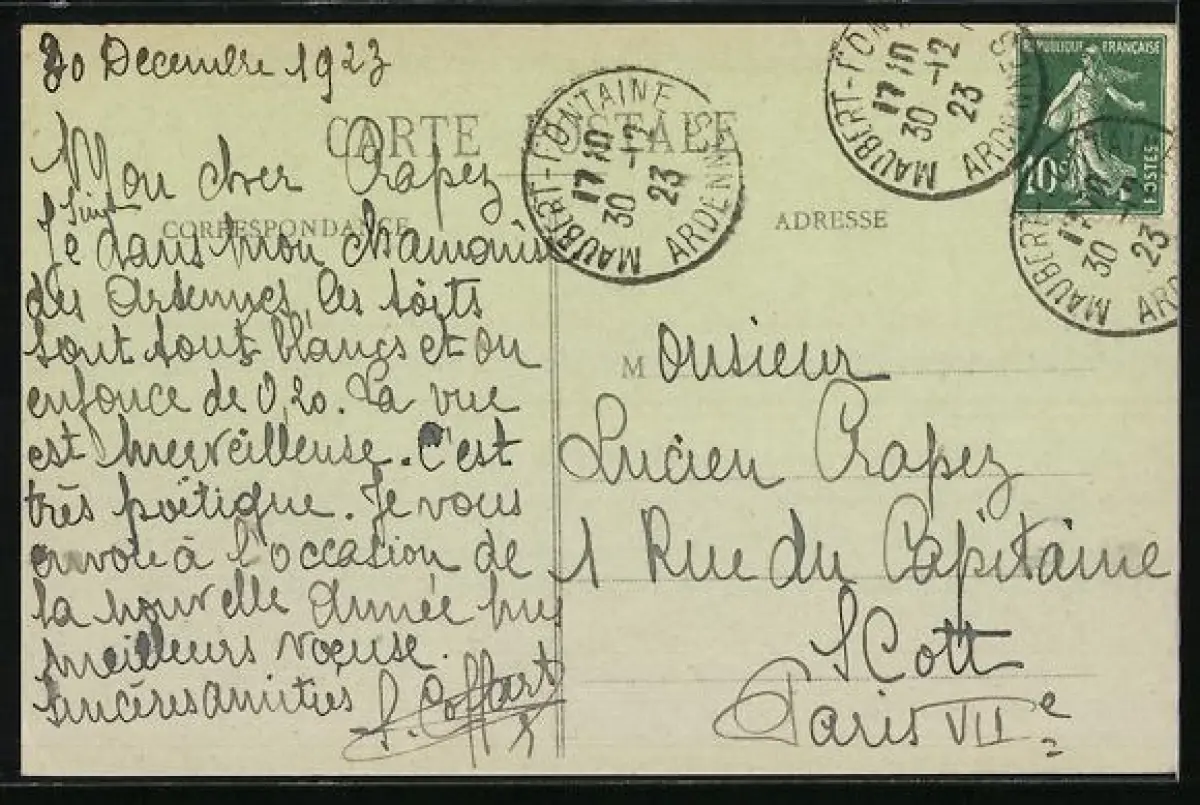 30 Decembre 1923
CARTE POSTALE
CORRESPONDANCE
ADRESSE
Mon cher Crapez
Je dans mon Chamonix
des Ardennes, les toits
sont tout blancs et on
enfonce de 0,20. La vue
est merveilleuse. C'est
très poëtique. Je vous
envoie à l'occasion de
la nouvelle année mes
meilleurs voeuse.
Sincères amitiés
Monsieur
Lucien Crapez
1 Rue du Capitaine
SCott
Paris VIIe
RÉPUBLIQUE FRANÇAISE
10c
POSTES
MAUBERT-FONTAINE
17 10
30 -12
23
ARDENNES
MAUBERT-FON
17 10
30 -12
23
ARDENNES
MAUBERT-
17 10
30 -12
23
ARD